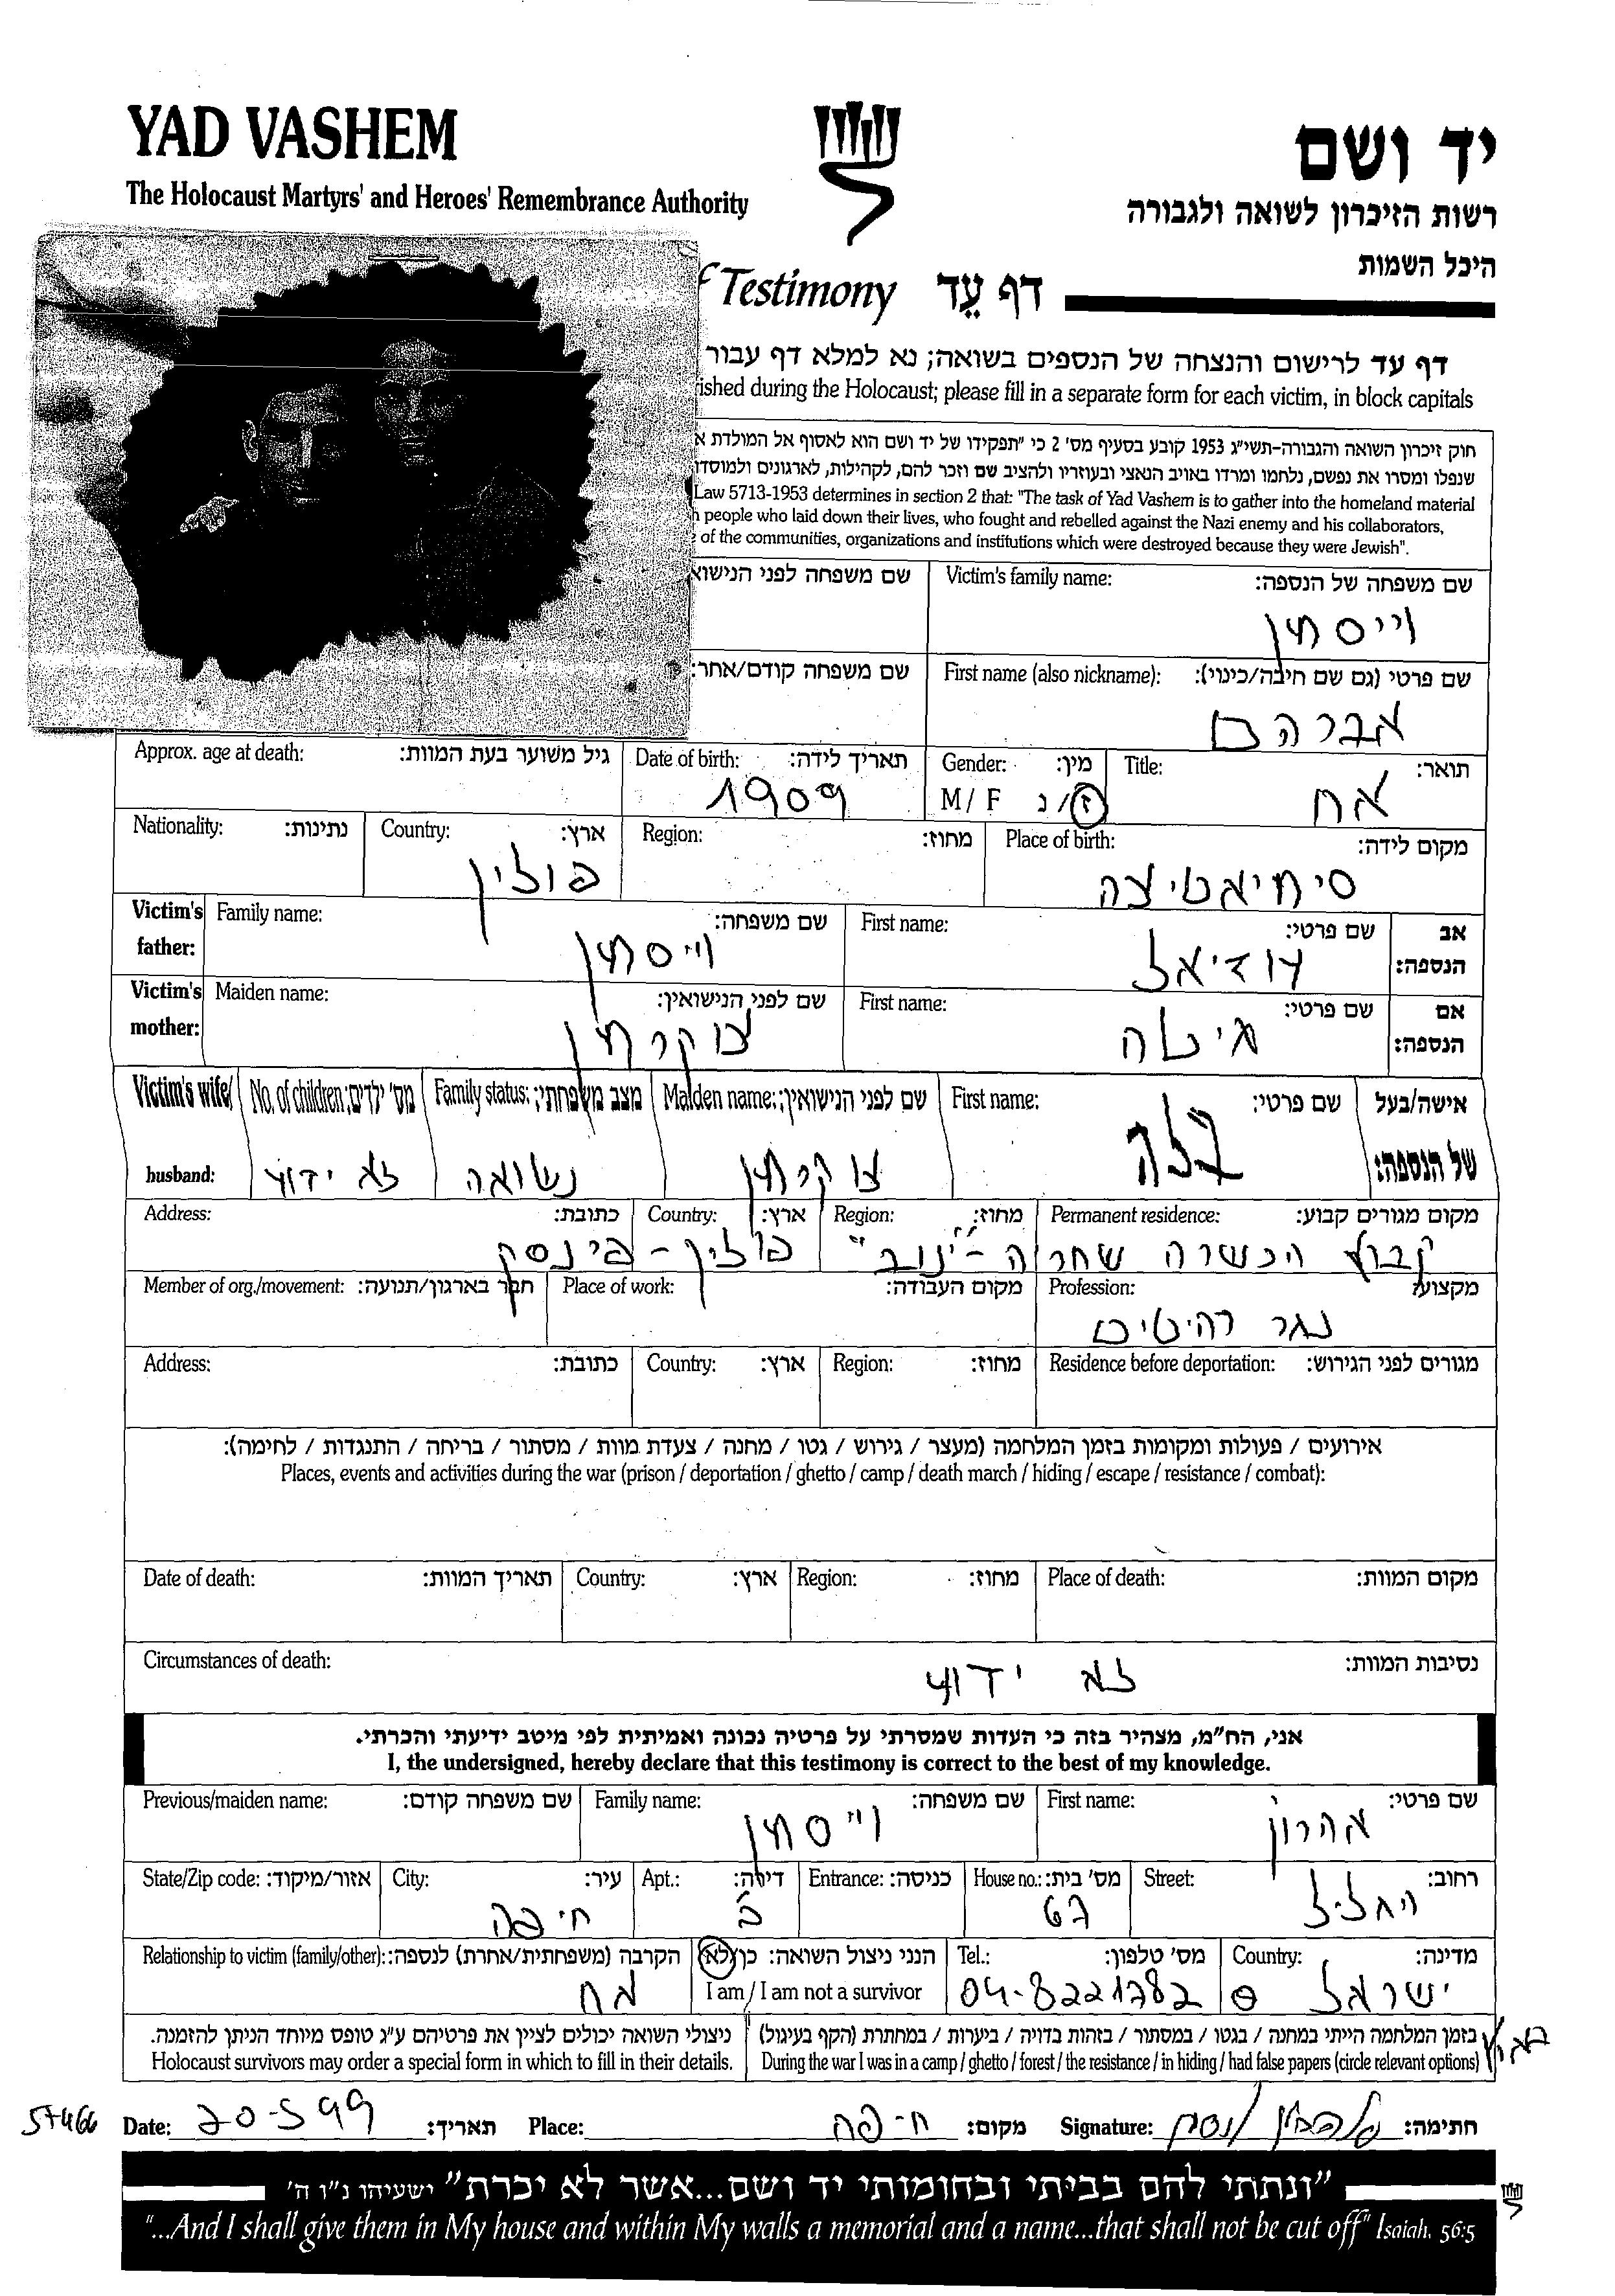 YAD VASHEM
יד ושם
The Holocaust Martyrs' and Heroes' Remembrance Authority
רשות הזיכרון לשואה ולגבורה
היכל השמות
Testimony דף עֵד
דף עד לרישום והנצחה של הנספים בשואה; נא למלא דף עבור
ished during the Holocaust; please fill in a separate form for each victim, in block capitals
חוק זיכרון השואה והגבורה-תשי״ג 1953 קובע בסעיף מס' 2 כי ״תפקידו של יד ושם הוא לאסוף אל המולדת א
שנפלו ומסרו את נפשם, נלחמו ומרדו באויב הנאצי ובעוזריו ולהציב שם וזכר להם, לקהילות, לארגונים ולמוסדו
Law 5713-1953 determines in section 2 that: "The task of Yad Vashem is to gather into the homeland material
people who laid down their lives, who fought and rebelled against the Nazi enemy and his collaborators,
of the communities, organizations and institutions which were destroyed because they were Jewish".
שם משפחה של הנספה: Victim's family name: שם משפחה לפני הנישוא
וייסמן
שם פרטי (גם שם חיבה/כינוי): First name (also nickname): שם משפחה קודם/אחר:
אברהם
תואר: Title: מין: Gender: תאריך לידה: Date of birth: גיל משוער בעת המוות: Approx. age at death:
אח ז/נ M/F 1909
מקום לידה: Place of birth: מחוז: Region: ארץ: Country: נתינות: Nationality:
סימיאטיצה פולין
אב הנספה: שם פרטי: First name: שם משפחה: Family name: Victim's father:
עודיאל וייסמן
אם הנספה: שם פרטי: First name: שם לפני הנישואין: Maiden name: Victim's mother:
גיטלה צוקרמן
אישה/בעל של הנספה: שם פרטי: First name: שם לפני הנישואין: Maiden name: מצב משפחתי: Family status: מס' ילדים: No. of children: Victim's wife/ husband:
בלה צוקרמן נשואה לא ידוע
מקום מגורים קבוע: Permanent residence: מחוז: Region: ארץ: Country: כתובת: Address:
קבוץ הכשרה שחריה - "ינוב" פולין - פינסק
מקצוע: Profession: מקום העבודה: Place of work: חבר בארגון/תנועה: Member of org./movement:
נגר רהיטים
מגורים לפני הגירוש: Residence before deportation: מחוז: Region: ארץ: Country: כתובת: Address:
אירועים / פעולות ומקומות בזמן המלחמה (מעצר / גירוש / גטו / מחנה / צעדת מוות / מסתור / בריחה / התנגדות / לחימה):
Places, events and activities during the war (prison / deportation / ghetto / camp / death march / hiding / escape / resistance / combat):
מקום המוות: Place of death: מחוז: Region: ארץ: Country: תאריך המוות: Date of death:
נסיבות המוות: Circumstances of death:
לא ידוע
אני, הח״מ, מצהיר בזה כי העדות שמסרתי על פרטיה נכונה ואמיתית לפי מיטב ידיעתי והכרתי.
I, the undersigned, hereby declare that this testimony is correct to the best of my knowledge.
שם פרטי: First name: שם משפחה: Family name: שם משפחה קודם: Previous/maiden name:
אהרון וייסמן
רחוב: Street: מס' בית: House no.: כניסה: Entrance: דירה: Apt.: עיר: City: אזור/מיקוד: State/Zip code:
הגליל 67 חיפה
מדינה: Country: מס' טלפון: Tel.: הנני ניצול השואה: כן/לא הקרבה (משפחתית/אחרת) לנספה: Relationship to victim (family/other):
ישראל 04-8221782 I am / I am not a survivor אח
בזמן המלחמה הייתי במחנה / בגטו / במסתור / בזהות בדויה / ביערות / במחתרת (הקף בעיגול)
During the war I was in a camp / ghetto / forest / the resistance / in hiding / had false papers (circle relevant options)
ניצולי השואה יכולים לציין את פרטיהם ע״ג טופס מיוחד הניתן להזמנה.
Holocaust survivors may order a special form in which to fill in their details.
חתימה: Signature: מקום: חיפה Place: תאריך: 20-5 99 Date:
״ונתתי להם בביתי ובחומותי יד ושם...אשר לא יכרת״ ישעיהו נ״ו ה'
"...And I shall give them in My house and within My walls a memorial and a name...that shall not be cut off" Isaiah, 56:5